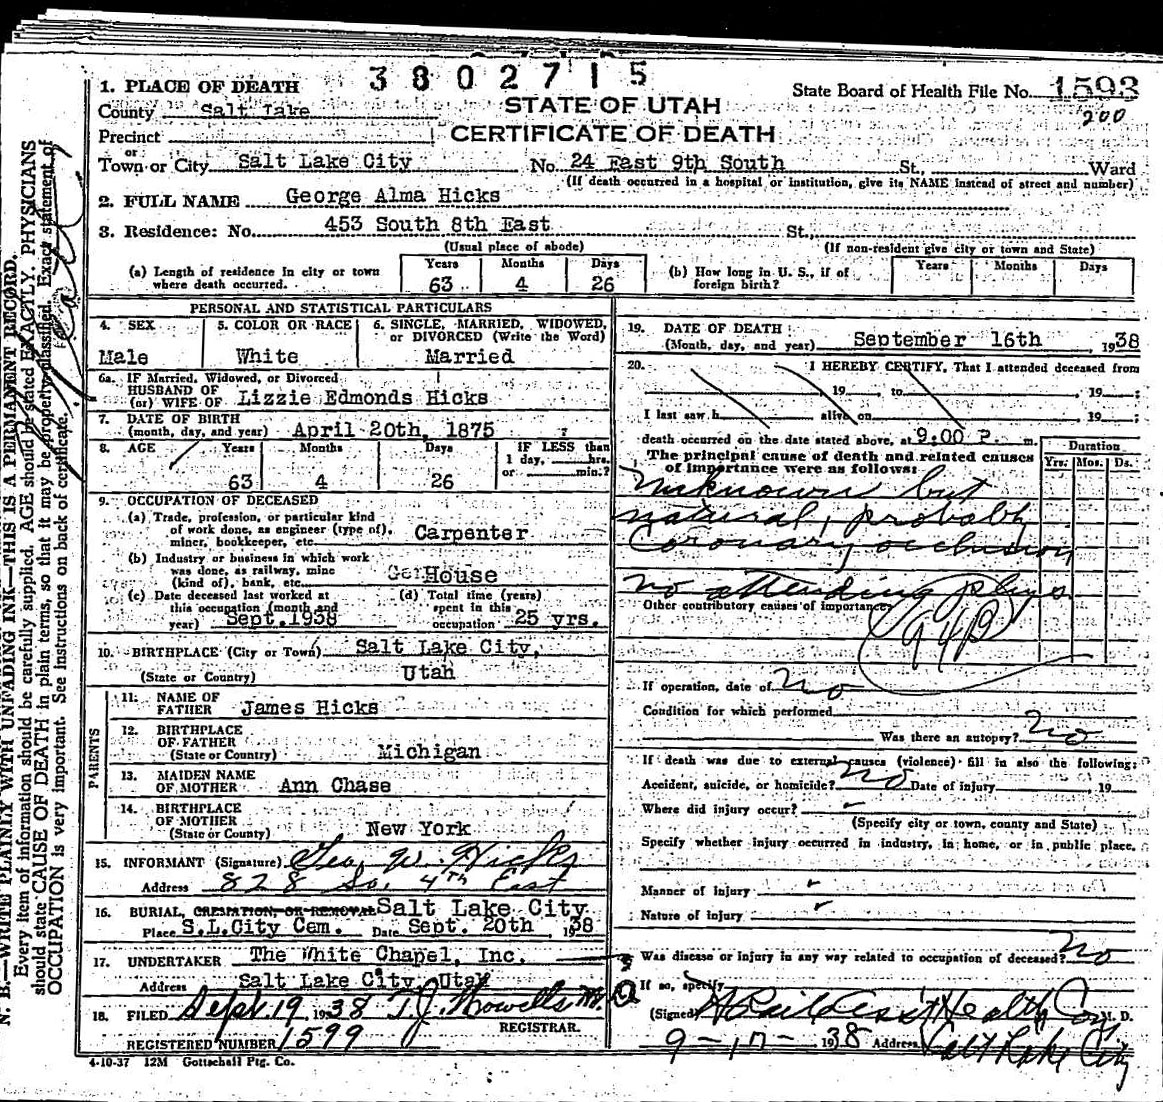 3802715
1. PLACE OF DEATH
State Board of Health File No. 1593
County Salt Lake
STATE OF UTAH
200
Precinct
CERTIFICATE OF DEATH
or
Town or City Salt Lake City No. 24 East 9th South St., Ward
(If death occurred in a hospital or institution, give its NAME instead of street and number)
2. FULL NAME George Alma Hicks
3. Residence: No. 453 South 8th East St.,
(Usual place of abode) (If non-resident give city or town and State)
(a) Length of residence in city or town where death occurred. Years 63 Months 4 Days 26
(b) How long in U. S., if of foreign birth? Years Months Days
PERSONAL AND STATISTICAL PARTICULARS
4. SEX Male
5. COLOR OR RACE White
6. SINGLE, MARRIED, WIDOWED, or DIVORCED (Write the Word) Married
6a. IF Married, Widowed, or Divorced
HUSBAND OF
(or) WIFE OF Lizzie Edmonds Hicks
7. DATE OF BIRTH
(month, day, and year) April 20th, 1875
8. AGE Years 63 Months 4 Days 26
IF LESS than
1 day, hrs.
or min.?
9. OCCUPATION OF DECEASED
(a) Trade, profession, or particular kind
of work done, as engineer (type of),
miner, bookkeeper, etc. Carpenter
(b) Industry or business in which work
was done, as railway, mine
(kind of), bank, etc. House
(c) Date deceased last worked at
this occupation (month and
year) Sept. 1938
(d) Total time (years)
spent in this
occupation 25 yrs.
10. BIRTHPLACE (City or Town) Salt Lake City,
(State or Country) Utah
PARENTS
11. NAME OF
FATHER James Hicks
12. BIRTHPLACE
OF FATHER
(State or Country) Michigan
13. MAIDEN NAME
OF MOTHER Ann Chase
14. BIRTHPLACE
OF MOTHER
(State or County) New York
15. INFORMANT (Signature) Geo. W. Hicks
Address 828 So. 4th East
16. BURIAL, CREMATION, OR REMOVAL Salt Lake City
Place S.L.City Cem. Date Sept. 20th 1938
17. UNDERTAKER The White Chapel, Inc.
Address Salt Lake City, Utah
18. FILED Sept 19 1938 T.J. Howells M.D
REGISTRAR.
REGISTERED NUMBER 1599
4-10-37 12M Gottschall Ptg. Co.
19. DATE OF DEATH
(Month, day, and year) September 16th 1938
20. I HEREBY CERTIFY, That I attended deceased from
19 to , 19 ;
I last saw h alive on 19 ;
death occurred on the date stated above, at 9:00 P. m.
The principal cause of death and related causes
of importance were as follows:
Duration
Yrs. Mos. Ds.
Unknown but
natural, probably
Coronary occlusion
no attending phys
Other contributory causes of importance
94B
If operation, date of no
Condition for which performed
Was there an autopsy? no
If death was due to external causes (violence) fill in also the following:
Accident, suicide, or homicide? no Date of injury 19
Where did injury occur?
(Specify city or town, county and State)
Specify whether injury occurred in industry, in home, or in public place.
Manner of injury
Nature of injury
Was disease or injury in any way related to occupation of deceased? no
If so, specify
(Signed) Asst Health Com M. D.
9-17- 1938 Address Salt Lake City
N. B.—WRITE PLAINLY WITH UNFADING INK—THIS IS A PERMANENT RECORD.
Every item of information should be carefully supplied. AGE should be stated EXACTLY. PHYSICIANS
should state CAUSE OF DEATH in plain terms, so that it may be properly classified. Exact statement of
OCCUPATION is very important. See instructions on back of certificate.